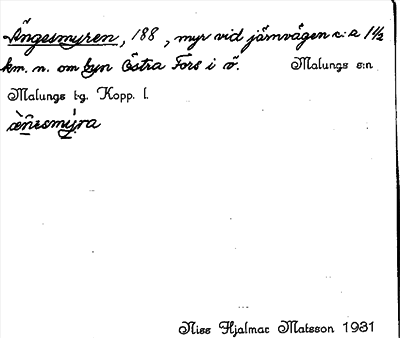 Ängesmyren, 188, myr vid järnvägen c:a 1½
km. n. om byn Östra Fors i ö. Malungs s:n
Malungs t-g. Kopp. l.
æ̀ñesmy̌ra
Nils Hjalmar Matsson 1931